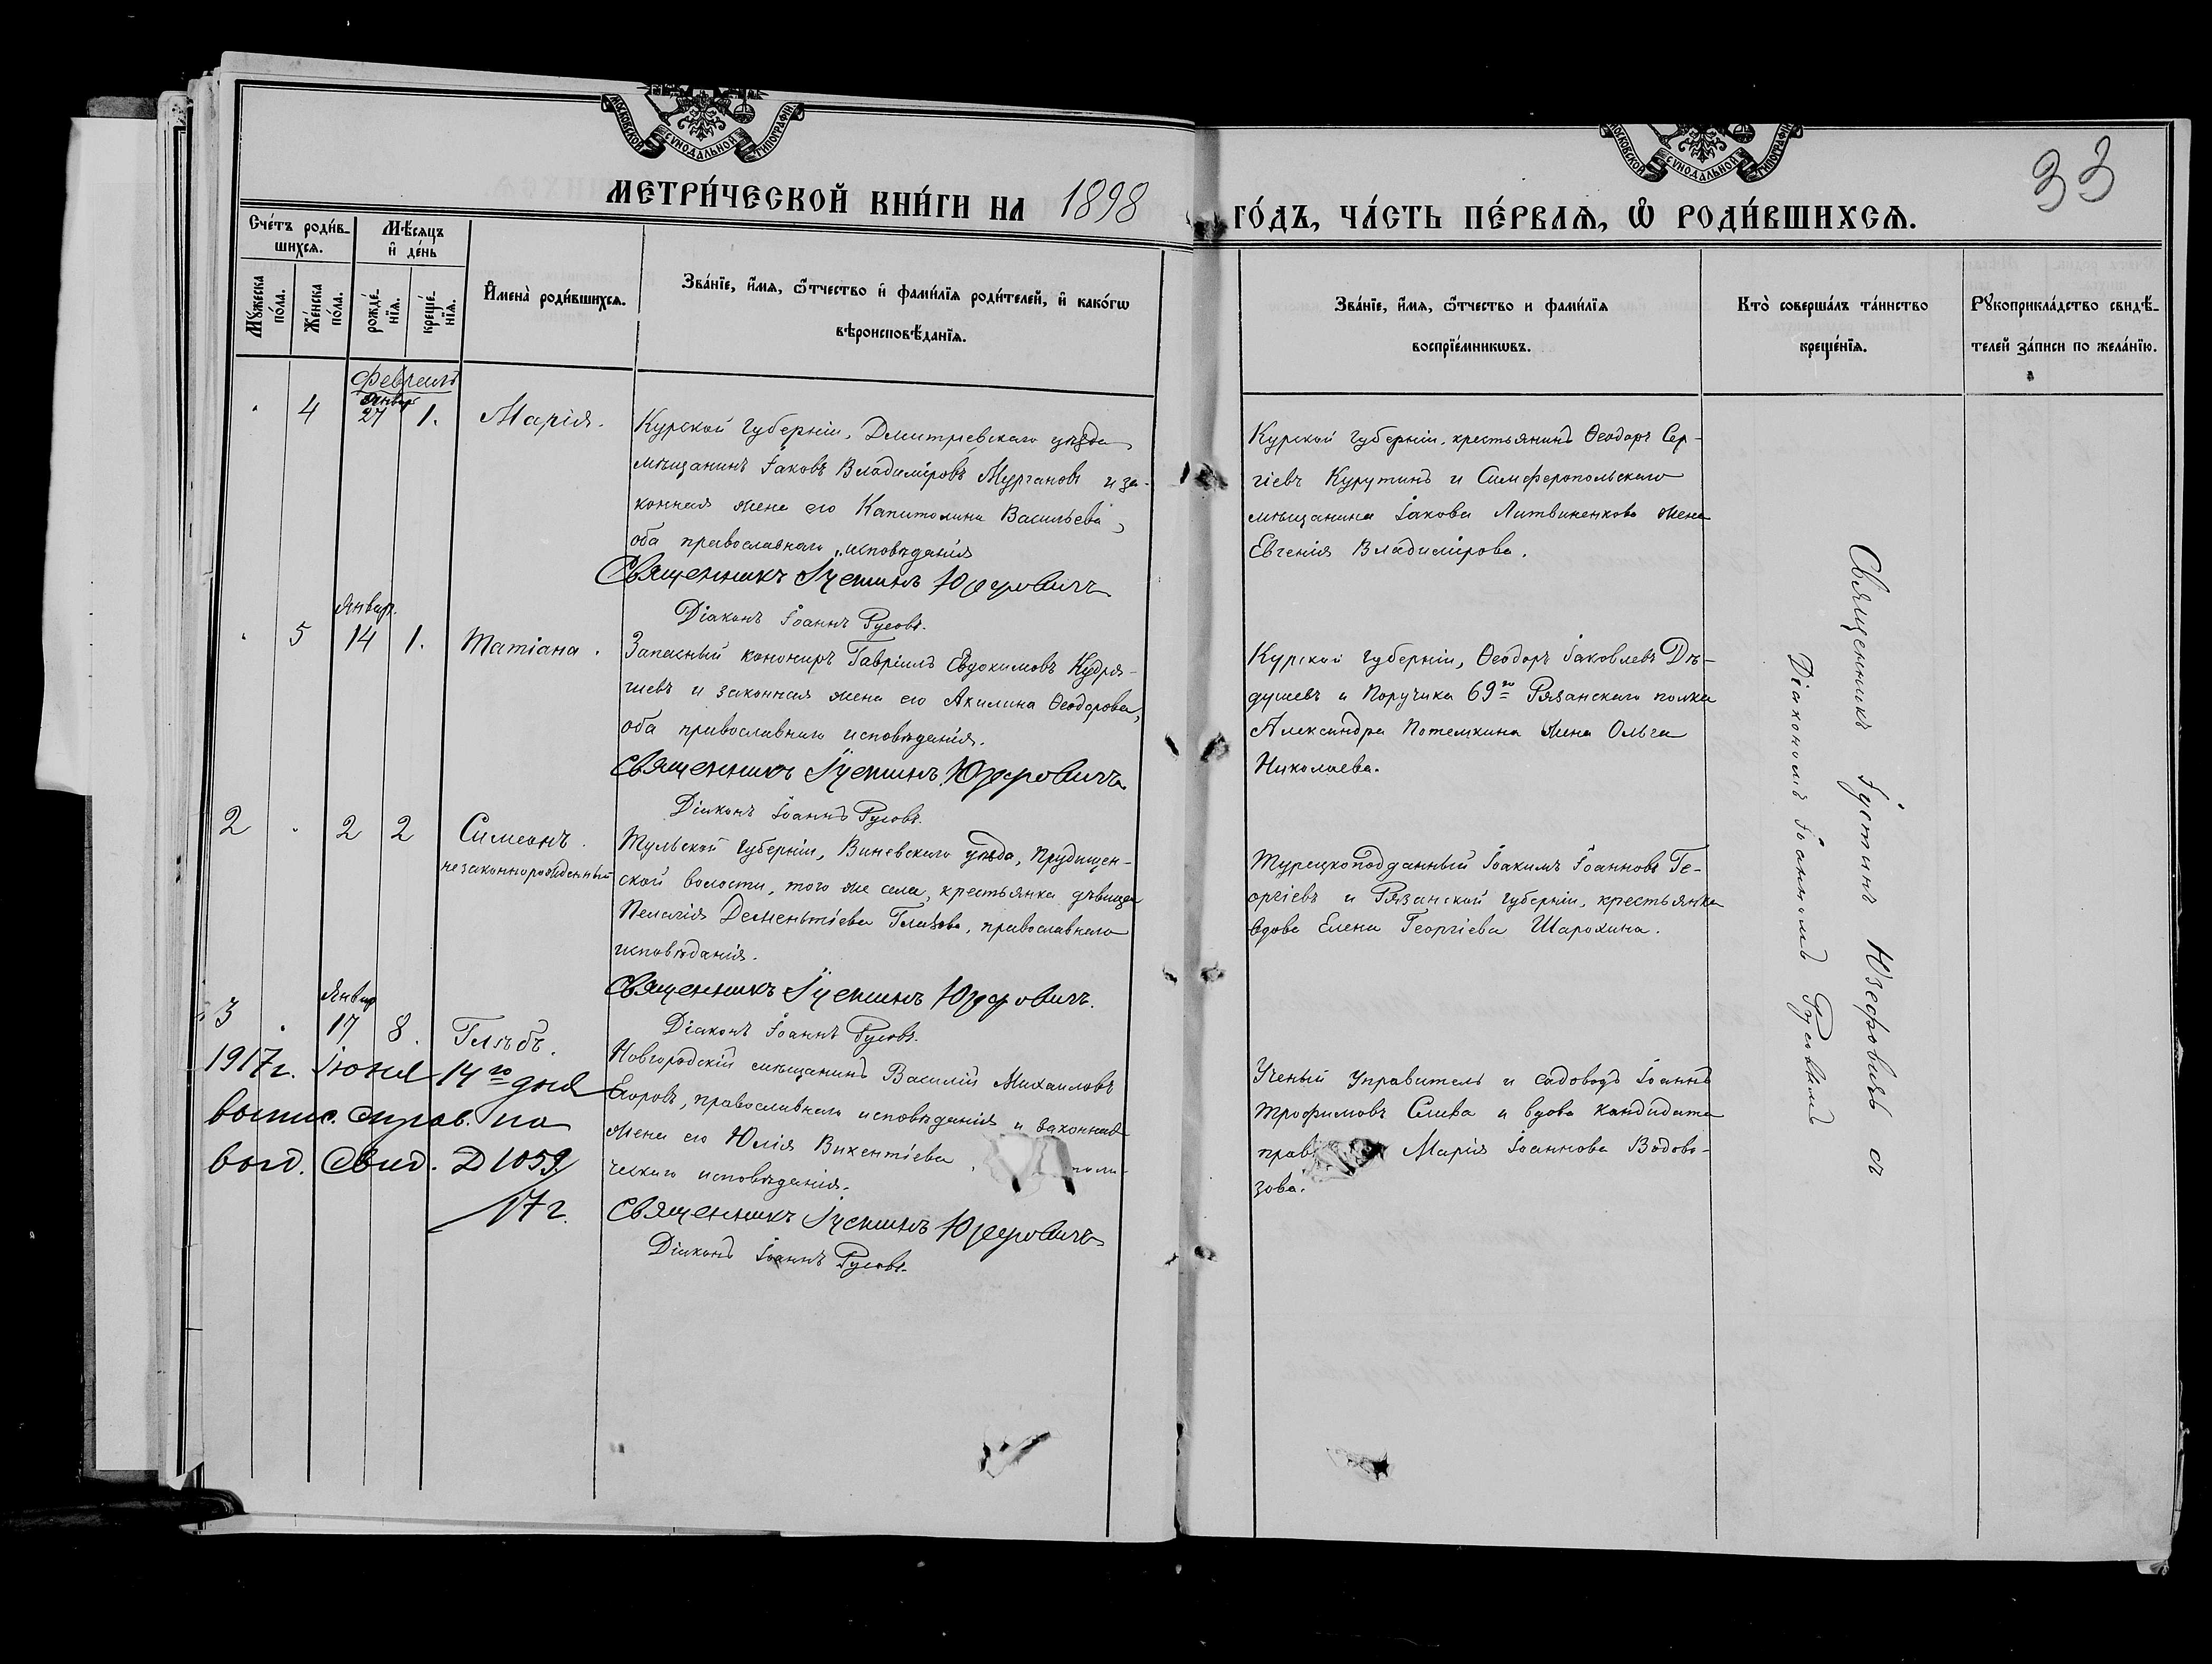 МОСКОВСКОЙ СѴНОДАЛЬНОЙ ТИПОГРАФІИ
МОСКОВСКОЙ СѴНОДАЛЬНОЙ ТИПОГРАФІИ
33
МЕТРИ́ЧЕСКОЙ КНИ́ГИ НА 1898 ГО́ДЪ, ЧА́СТЬ ПЕ́РВАѦ, Ѡ҆ РОДИ́ВШИХСѦ.
Сче́тъ роди́в-
шихсѧ.
Мꙋ́жеска
по́ла.
Же́нска
по́ла.
Мѣ́сѧцъ
и҆ де́нь
рожде́-
нїѧ.
креще́-
нїѧ.
И҆мена̀ роди́вшихсѧ.
Зва́нїе, и҆́мѧ, ѻ҆́тчество и҆ фами́лїѧ роди́телей, и҆ како́гѡ
вѣроисповѣ́данїѧ.
Зва́нїе, и҆́мѧ, ѻ҆́тчество и фами́лїѧ
воспрїе́мникѡвъ.
Кто̀ соверша́лъ та́инство
креще́нїѧ.
Рꙋкоприкла́дство свидѣ́-
телей за́писи по жела́нїю.
Февраль
Январ
4 27 1. Марія.
Курской губерніи, Дмитріевскаго уѣзда
мѣщанинъ Іаковъ Владиміровъ Мурганов и за-
конная жена его Капитолина Васильева,
оба православнаго исповѣданія
Священникъ Іустинъ Юзефовичъ
Діаконъ Іоаннъ Русовъ.
Курской губерніи, крестьянинъ Ѳеодоръ Сер-
гіевъ Курутинъ и Симферопольскаго
мѣщанина Іакова Литвиненкова жена
Евгенія Владимірова.
Январ.
5 14 1. Татіана.
Запасный канониръ Гавріилъ Евдокимовъ Кудря-
шевъ и законная жена его Акилина Ѳеодорова,
оба православнаго исповѣданія.
Священникъ Іустинъ Юзефовичъ
Діаконъ Іоаннъ Русовъ.
Курской губерніи, Ѳеодоръ Іаковлевъ Дѣ-
душевъ и Поручика 69го Рязанскаго полка
Александра Потемкина жена Ольга
Николаева.
2 2 2 Симеонъ.
незаконнорожденный
Тульской губерніи, Виневскаго уѣзда, Прудищен-
ской волости, того же села, крестьянка дѣвица
Пелагія Дементіева Глазова, православнаго
исповѣданія.
Священникъ Іустинъ Юзефовичъ.
Діаконъ Іоаннъ Русовъ.
Турецкоподданный Іоакимъ Іоанновъ Ге-
оргіевъ и Рязанской губерніи, крестьянка
вдова Елена Георгіева Шарохина.
Январ
3 17 8. Глѣбъ.
Новгородскій мѣщанинъ Василій Михаиловъ
Егоровъ, православнаго исповѣданія и законная
жена его Юлія Викентіева,
ческаго исповѣданія.
Священникъ Іустинъ Юзефовичъ
Діаконъ Іоаннъ Русовъ.
Ученый Управитель и садоводъ Іоаннъ
Трофимовъ Слива и вдова кандидата
прав Марія Іоаннова Водово-
зова.
1917г. Іюня 14го дня
выпис. справ. на
выд. свид. 1059
17 г.
Священникъ Іустинъ Юзефовичъ съ
Діакономъ Іоанномъ Русовымъ